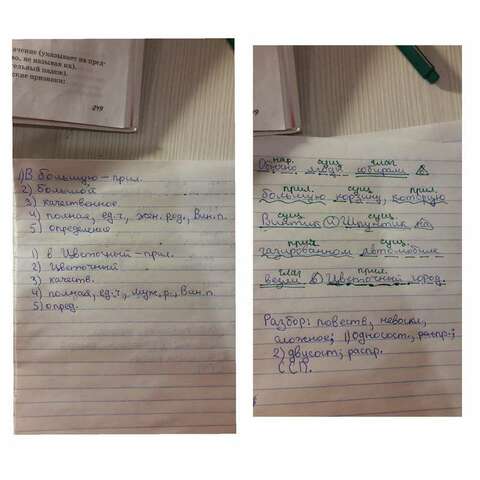 ачение (указывает на пред-
во, не называя их).
тельный падеж).
ские признаки:
249
1) В большую – прил.
2) большой
3) качественное
4) полная, ед.ч., жен. род., Вин.п.
5) определение
1) в Цветочный – прил.
2) Цветочный
3) качеств.
4) полная, ед.ч., муж. р., Вин.п.
5) опред.
нар. сущ. глаг
Обычно люди собирали в
прил. сущ. прил.
большую корзину, которую
сущ. сущ.
Винтик и Шпунтик на
прил сущ.
газированном автомобиле
глаг прил.
везли в Цветочный город.
Разбор: повеств, невоскл,
сложное; 1) односост., распр.;
2) двусост; распр.